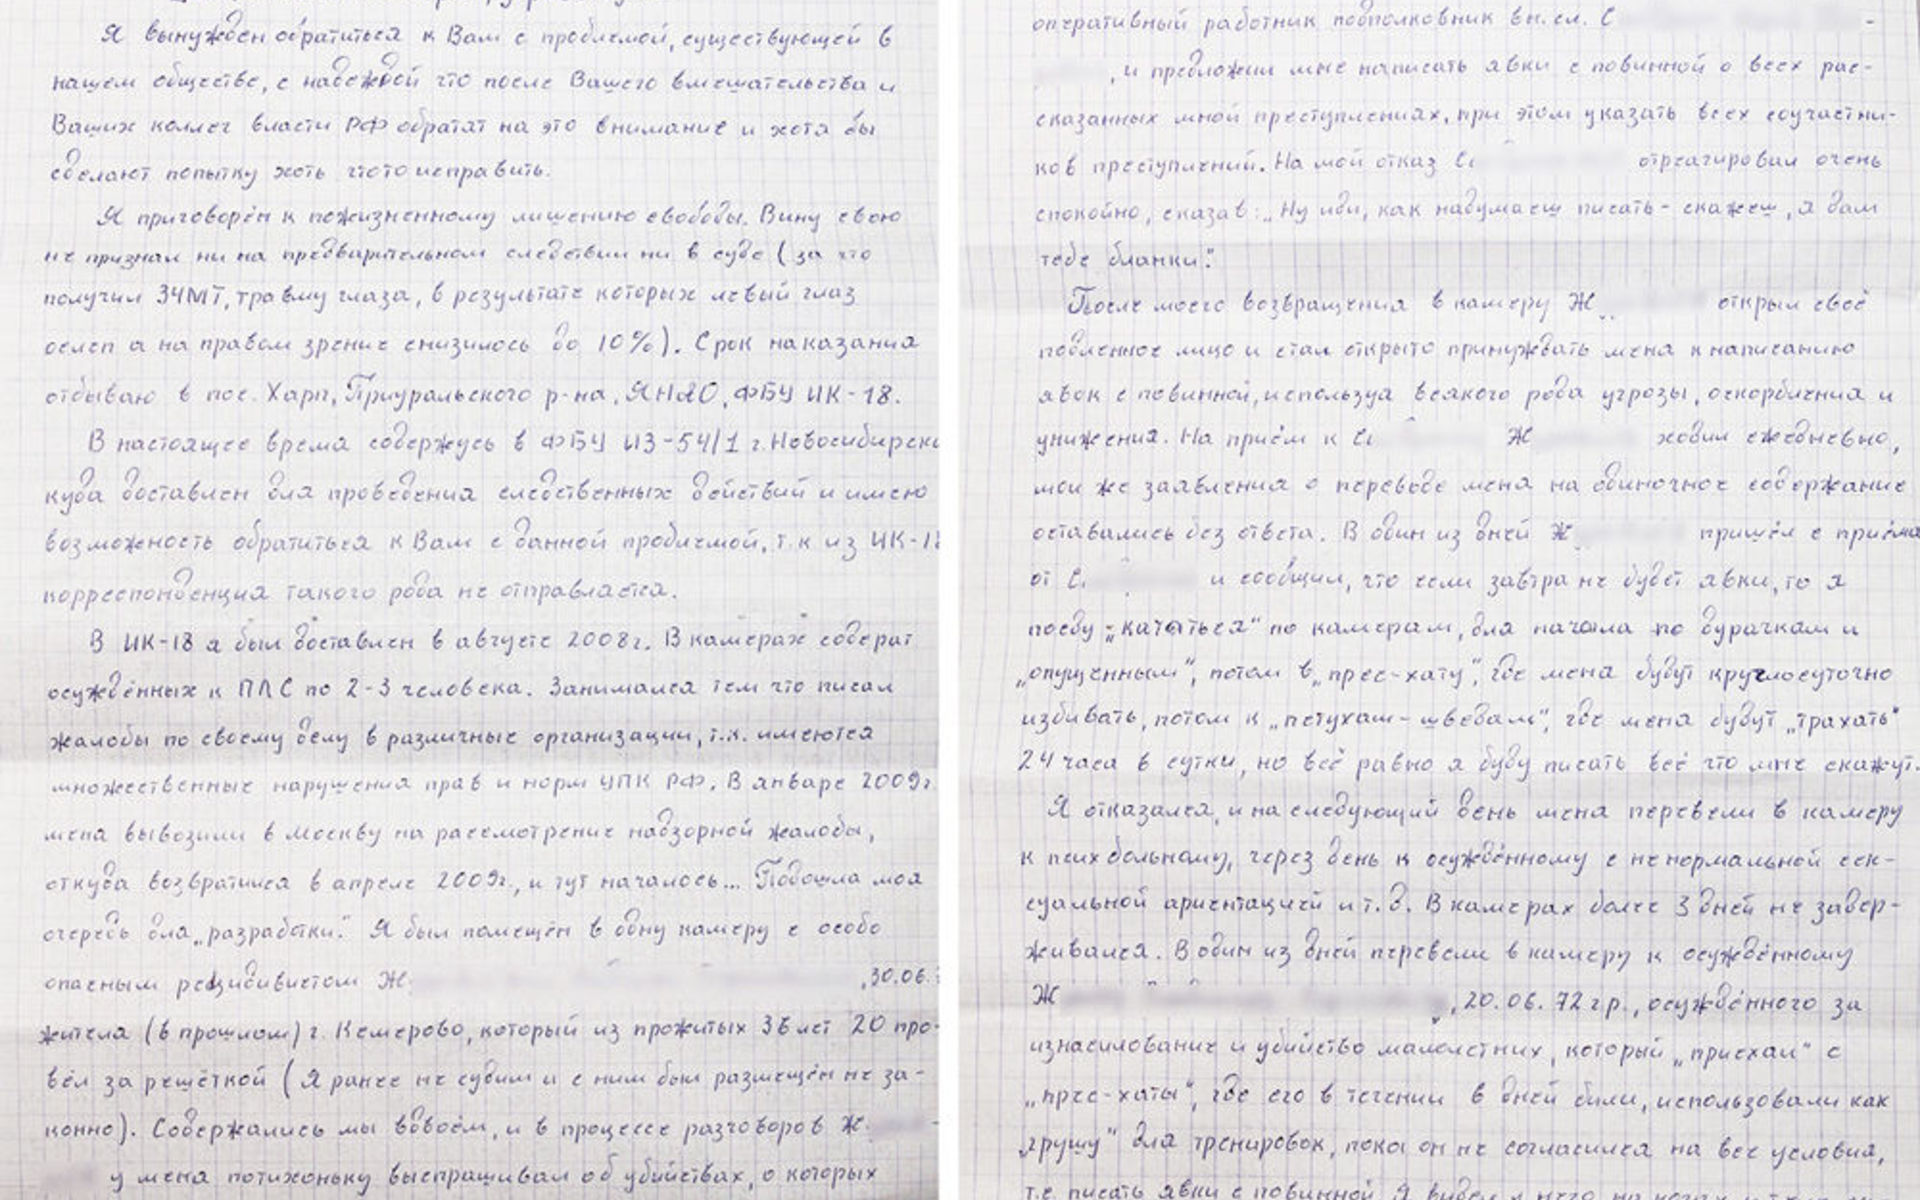 Я вынужден обратиться к Вам с проблемой, существующей в
нашем обществе, с надеждой что после Вашего вмешательства и
Ваших коллег власти РФ обратят на это внимание и хотя бы
сделают попытку хоть чтото исправить.
Я приговорён к пожизненному лишению свободы. Вину свою
не признал ни на предварительном следствии ни в суде (за что
получил ЗЧМТ, травму глаза, в результате которых левый глаз
ослеп а на правом зрение снизилось до 10%). Срок наказания
отбываю в пос. Харп, Приуральского р-на, ЯНАО, ФБУ ИК-18.
В настоящее время содержусь в ФБУ ИЗ-54/1 г. Новосибирск
куда доставлен для проведения следственных действий и имею
возможность обратиться к Вам с данной проблемой, т.к из ИК-18
корреспонденция такого рода не отправляется.
В ИК-18 я был доставлен в августе 2008г. В камерах содержат
осуждённых к ПЛС по 2-3 человека. Занимался тем что писал
жалобы по своему делу в различные организации, т.к. имеются
множественные нарушения прав и норм УПК РФ. В январе 2009г.
меня вывозили в Москву на рассмотрение надзорной жалобы,
откуда возвратился в апреле 2009г., и тут началось... Подошла моя
очередь для „разработки“. Я был помещён в одну камеру с особо
опасным рецидивистом Ж , 30.06.
жителя (в прошлом) г. Кемерово, который из прожитых 36 лет 20 про-
вёл за решёткой (Я ранее не судим и с ним был размещён не за-
конно). Содержались мы вдвоём, и в процессе разговоров Ж
у меня потихоньку выспрашивал об убийствах, о которых
оперативный работник подполковник вн. сл. С -
, и предложил мне написать явки с повинной о всех рас-
сказанных мной преступлениях, при этом указать всех соучастни-
ков преступлений. На мой отказ С отреагировал очень
спокойно, сказав: „Ну иди, как надумаеш писать - скажеш, я дам
тебе бланки“.
После моего возвращения в камеру Ж открыл своё
подленное лицо и стал открыто принуждать меня к написанию
явок с повинной, используя всякого рода угрозы, оскорбления и
унижения. На приём к С Ж ходил ежедневно,
мои же заявления о переводе меня на одиночное содержание
оставались без ответа. В один из дней Ж пришёл с приёма
от С. и сообщил, что если завтра не будет явки, то я
поеду „кататься“ по камерам, для начала по дурачкам и
„опущенным“, потом в „прес-хату“, где меня будут круглосуточно
избивать, потом к „петухам-шведам“, где меня будут „трахать“
24 часа в сутки, но всё равно я буду писать всё что мне скажут.
Я отказался, и на следующий день меня перевели в камеру
к псих больному, через день к осуждённому с не нормальной сек-
суальной ариентацией и т.д. В камерах более 3 дней не задер-
живался. В один из дней перевели в камеру к осуждённому
Ж , 20.06.72 гр., осуждённого за
изнасилование и убийство малолетних, который „приехал“ с
„прес-хаты“, где его в течении 6 дней били, использовали как
„грушу“ для тренировок, пока он не согласился на все условия,
т.е. писать явки с повинной. Я видел у него на ногах